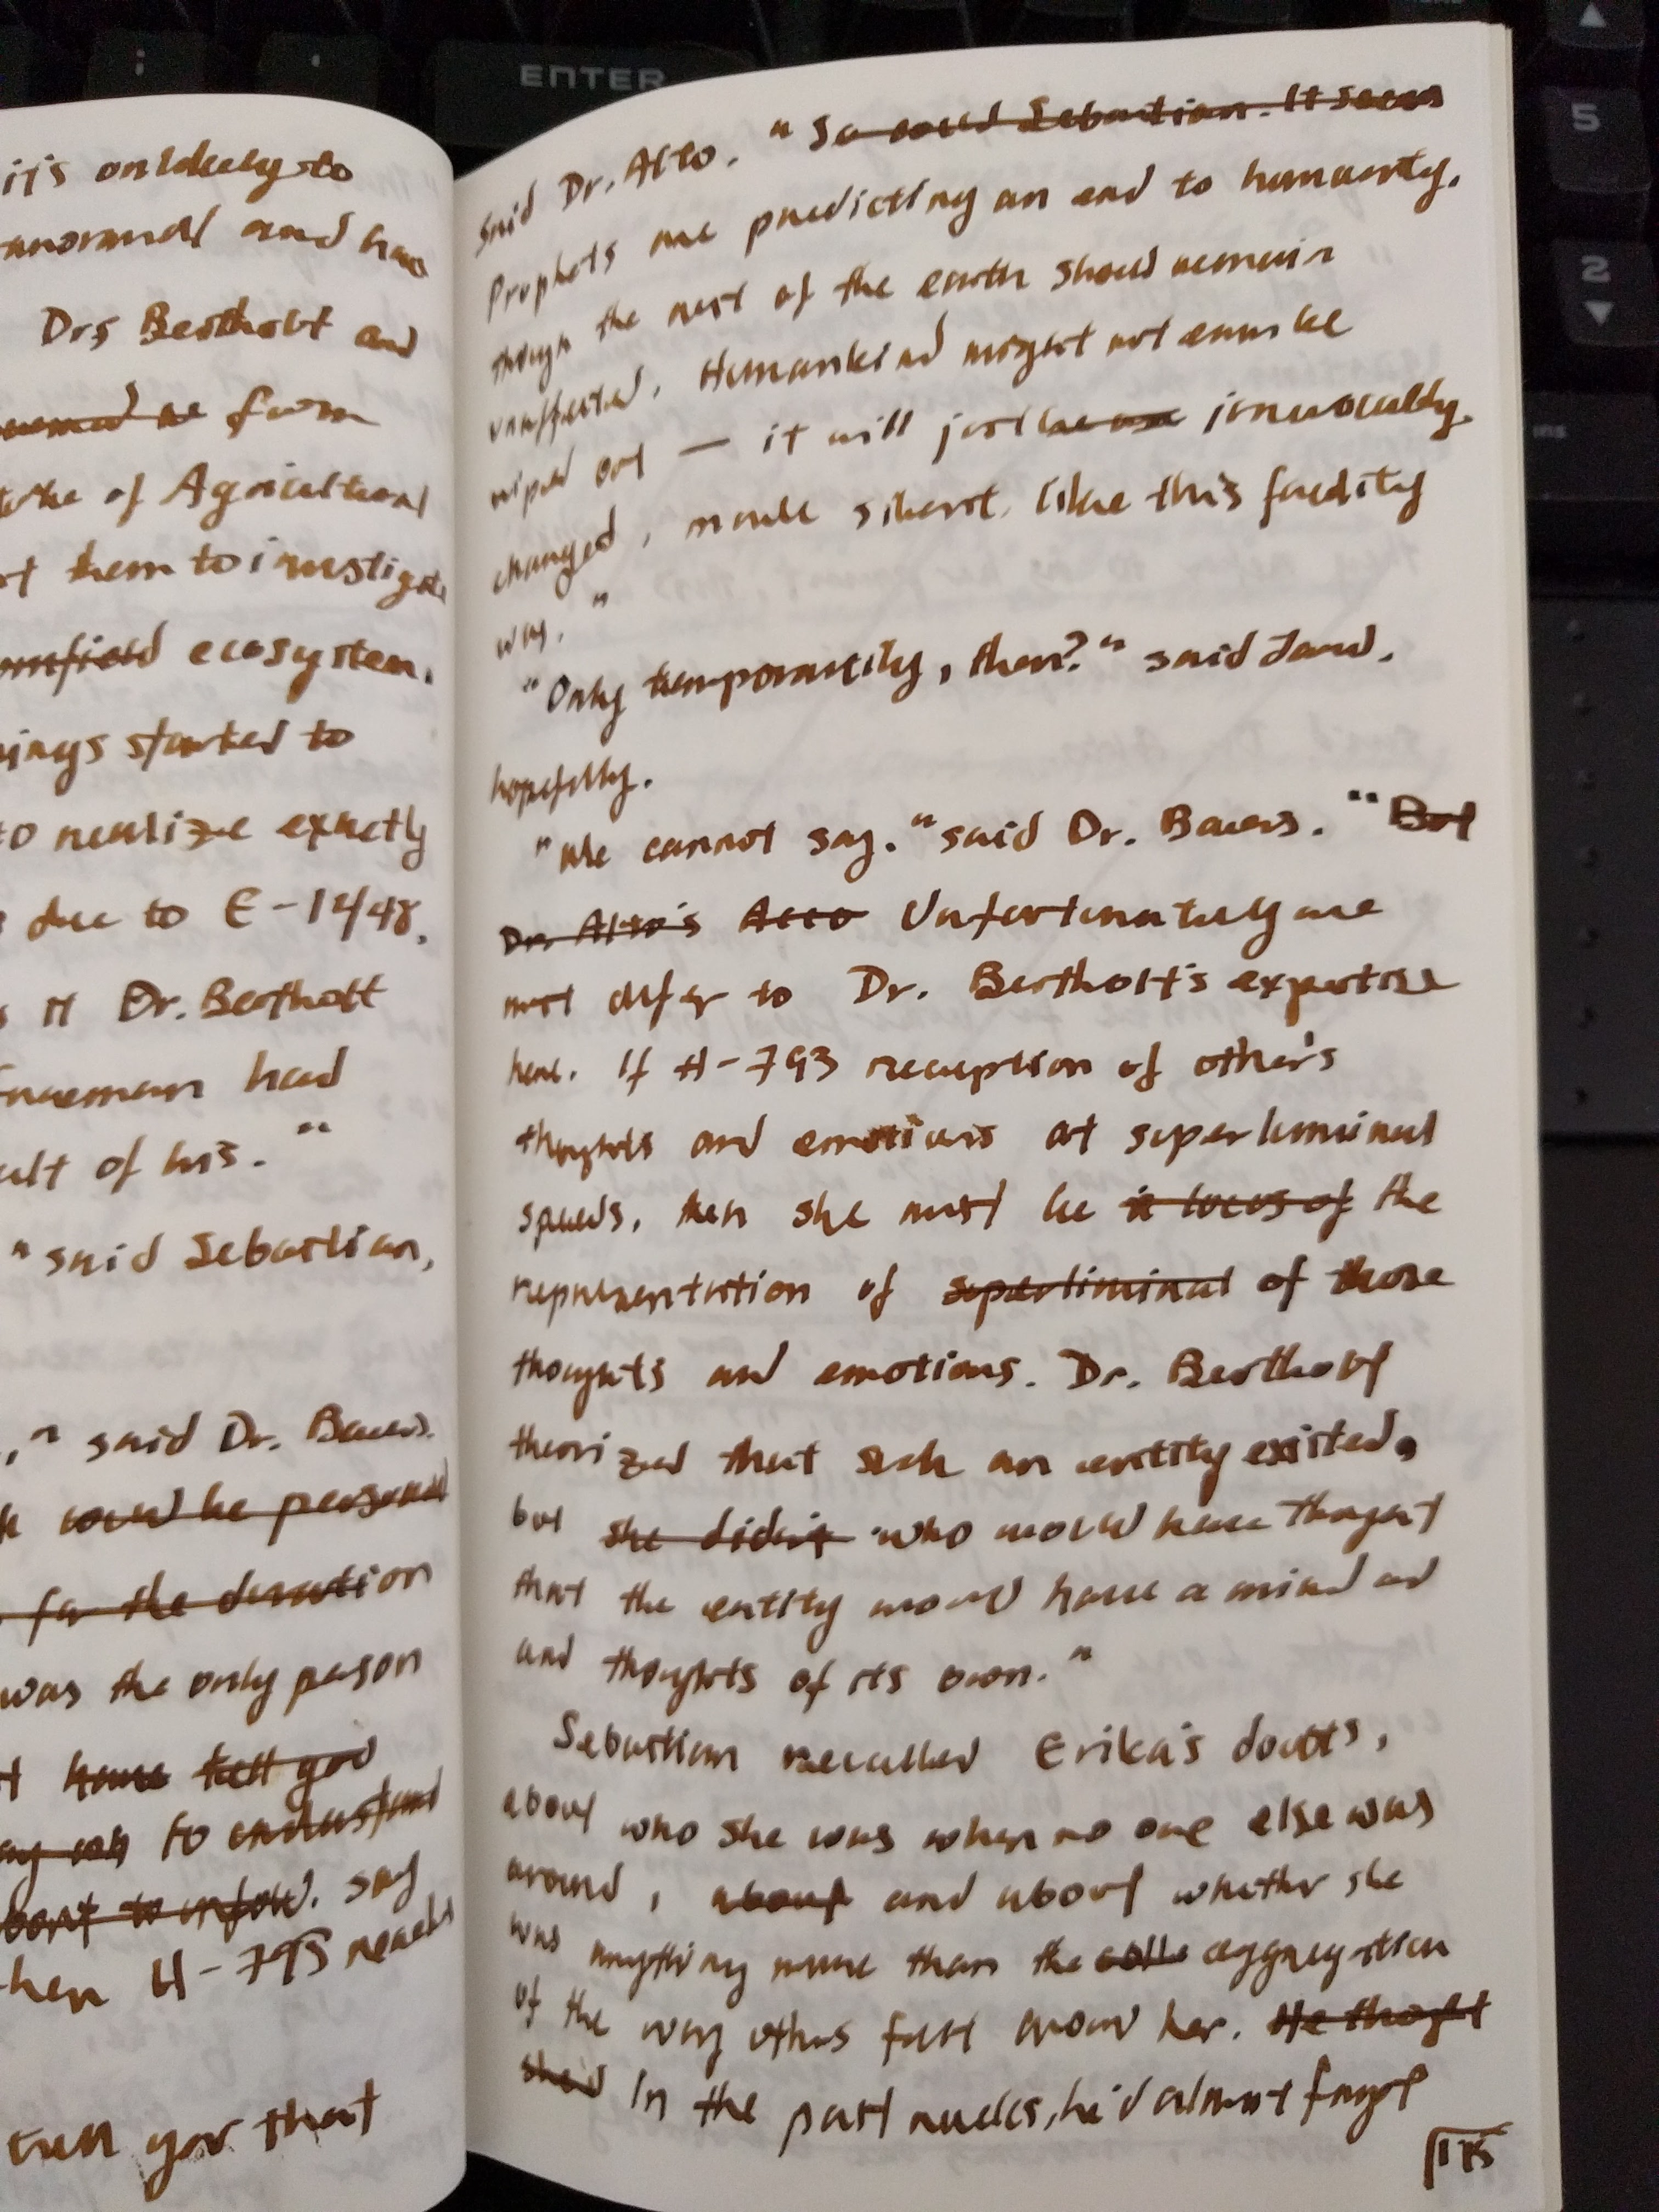 ;
'
ENTER
5
2
ins
it's unlikely to
anormal and have
Drs Berthold and
farm
of Agricultural
them to investigate
cornfield ecosystem.
started to
to realize exactly
due to E-14/48.
Dr. Berthold
had
of his."
" said Sebastian,
," said Dr. Bauers.
would be personal
for the duration
was the only person
have tell you
to understand
about to unfold. say
H-793
tell you that
said Dr. Alto. " So could Sebastian. It seems
Prophets are predicting an end to humanity,
though the rest of the earth should remain
unaffected. Humankind might not even be
wiped out — it will just be irrevocably
changed, made silent, like this facility
was."
"Only temporarily, then?" said Jane,
hopefully.
"We cannot say." said Dr. Bauers. " But
Dr. Alto's Unfortunately we
must defer to Dr. Berthold's expertise
here. If H-793 reception of others
thoughts and emotions at superluminal
speeds, then she must be a locus of the
representation of superliminal of those
thoughts and emotions. Dr. Berthold
theorized that such an entity existed,
but she didn't who would have thought
that the entity would have a mind and
and thoughts of its own."
Sebastian recalled Erika's doubts,
about who she was when no one else was
around, about and about whether she
was anything more than the aggregation
of the way others felt around her. He thought
she'd In the past weeks, he'd almost forgot